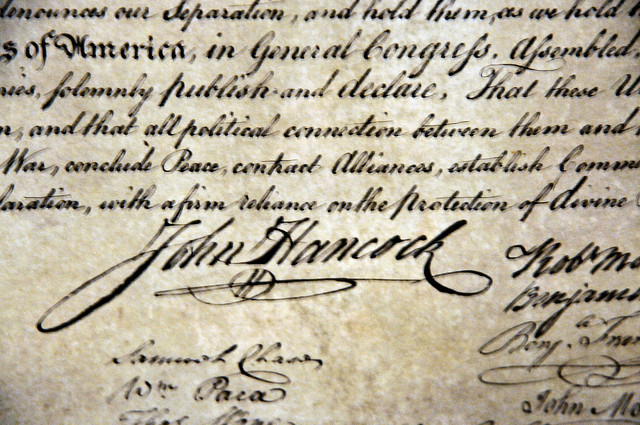 denounces our Separation, and hold them, as we hold
s of America, in General Congress, Assembled,
nies, solemnly publish and declare, That these U
n, and that all political connection between them and
War, conclude Peace, contract Alliances, establish Comme
laration, with a firm reliance on the Protection of divine
John Hancock
Robt Mo
Benjamin
Benj. Fran
John Mo
Samuel Chase
Wm Paca
Thos Stone